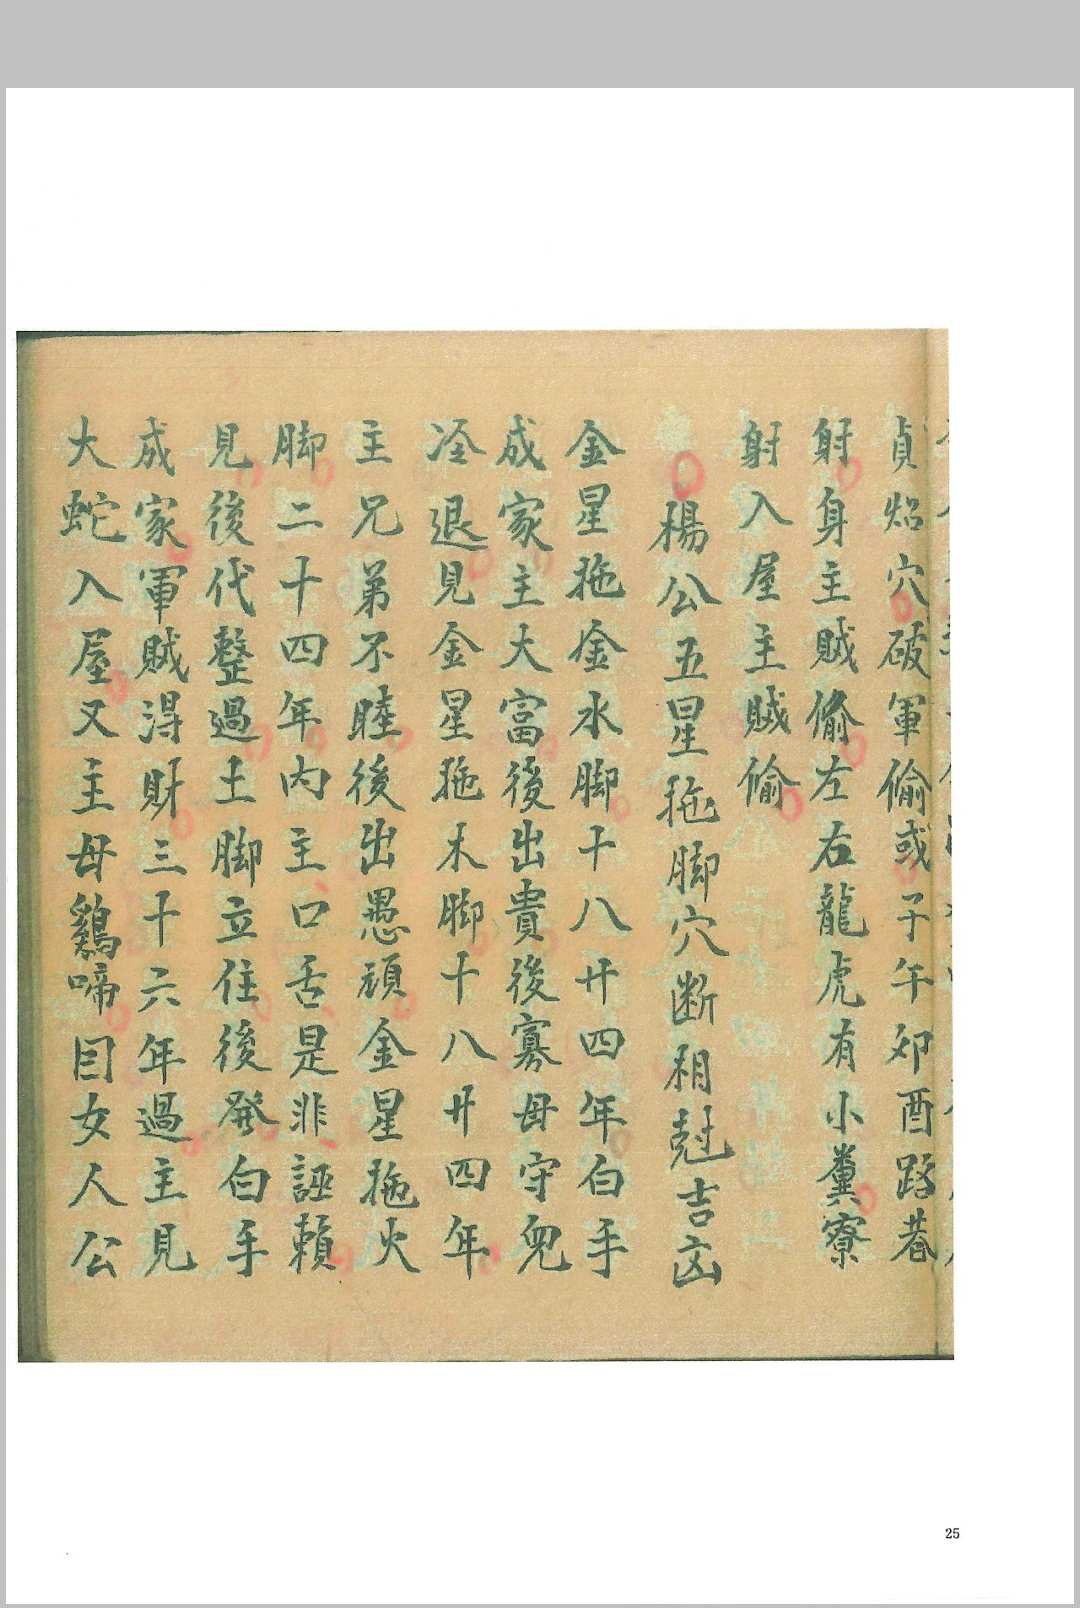 貞炤穴破軍偷或子午卯酉路巷
射身主賊偷左右龍虎有小糞寮
射入屋主賊偷
楊公五星拖脚穴断相尅吉凶
金星拖金水脚十八廾四年白手
成家主大富後出貴後寡母守兒
冷退見金星拖木脚十八廾四年
主兄弟不睦後出愚頑金星拖火
脚二十四年内主口舌是非誣賴
見後代整過土脚立住後発白手
成家軍賊淂財三十六年過主見
大蛇入屋又主母鷄啼因女人公
25